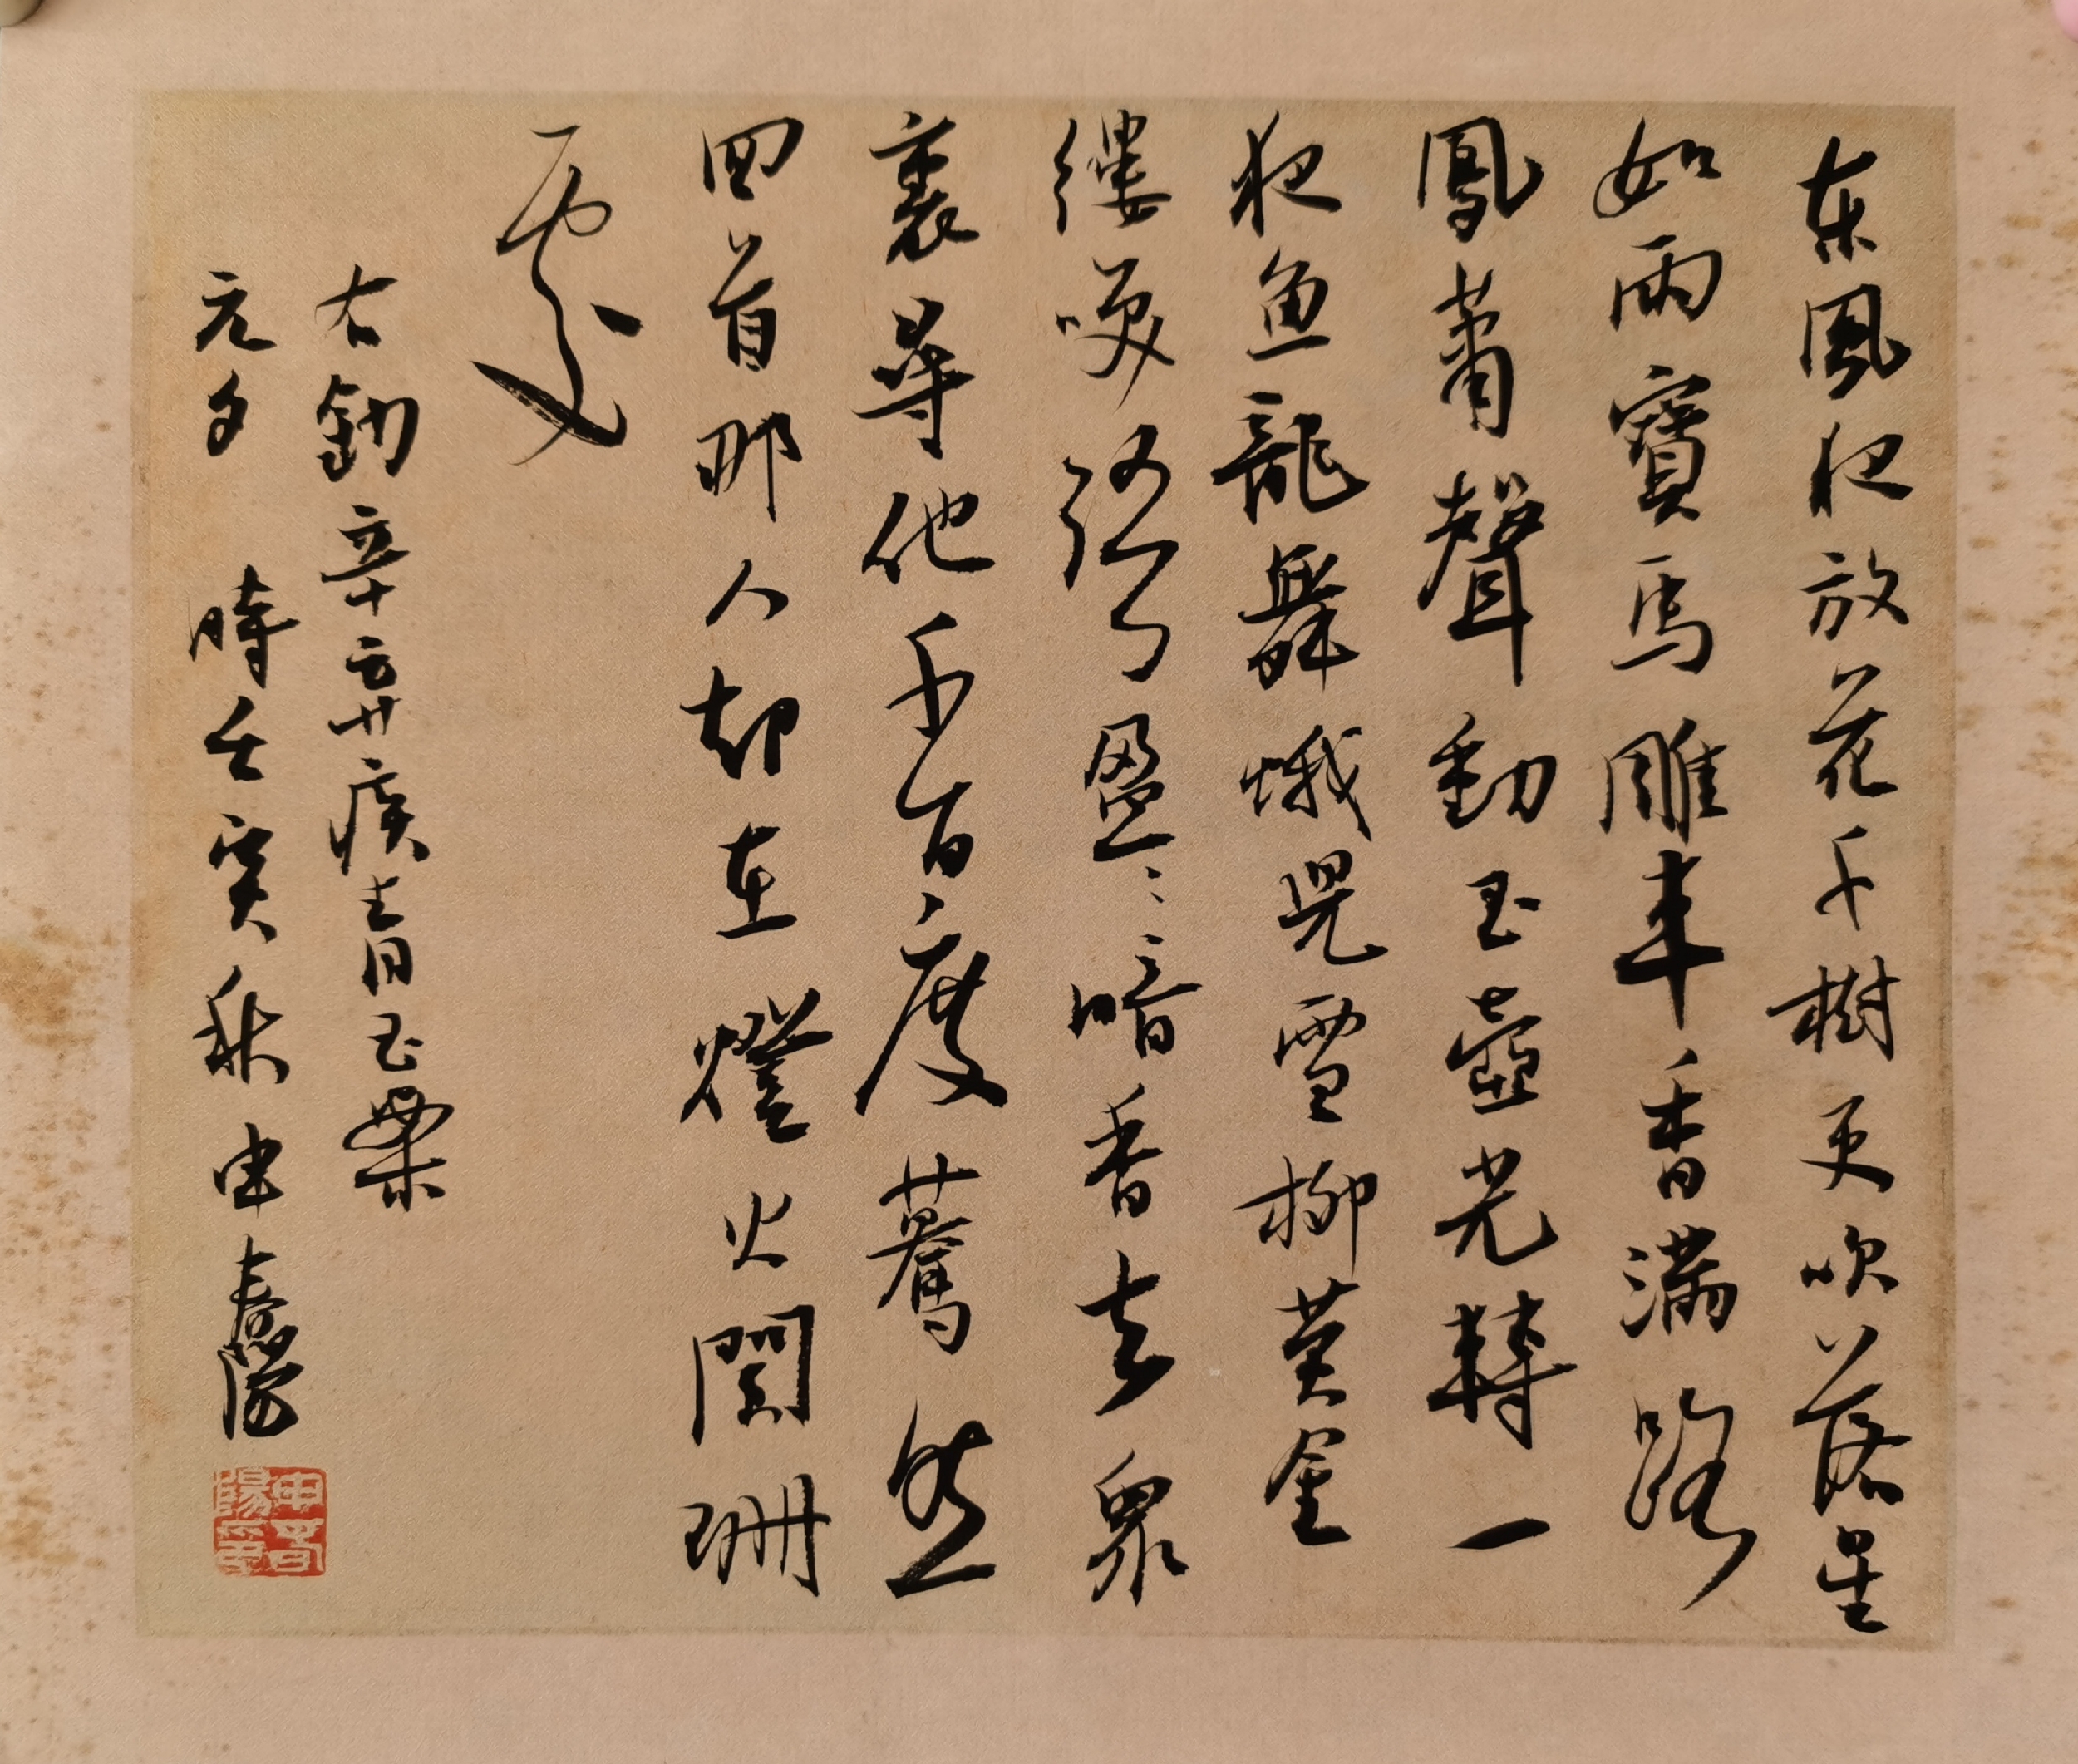 東風夜放花千樹更吹落星
如雨寶馬雕車香滿路
鳳蕭聲動玉壺光轉一
夜魚龍舞蛾兒雪柳黄金
縷咲語盈〻暗香去眾
裏尋他千百度驀然
回首那人却在燈火闌珊
處
右鈔辛棄疾青玉案
元夕 時壬寅秋申春陽
申春陽印